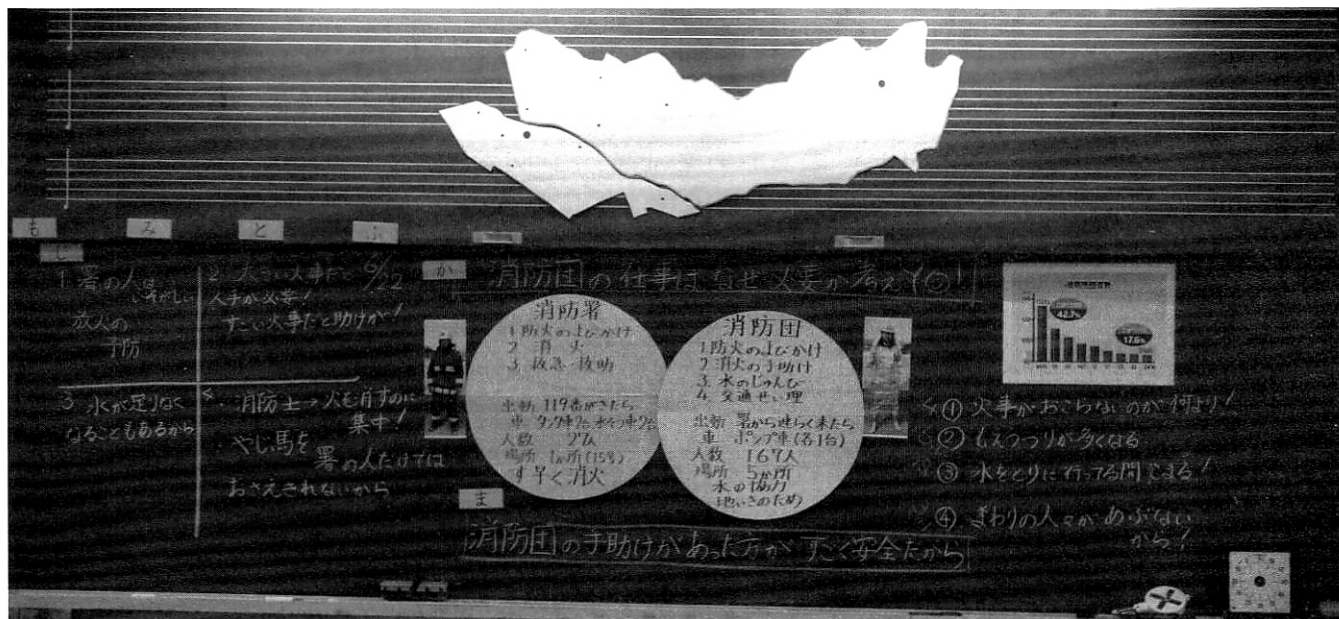 も
み
と
ふ
じ
1. 署の人は
いそがしい
放火の
予防
2. 大きい火事だと
人手が必要!
すごい火事だと助けが!
6/22
3 水が足りなく
なることもあるから
・消防士→火を消すのに
集中!
・やじ馬を
署の人だけでは
おさえきれないから
か
消防団の仕事はなぜ必要か考えよう!
消防署
1. 防火のよびかけ
2 消火
3 救急・救助
出動 119番がきたら
車 タンク車2台 水そう車2台
人数 27人
場所 1か所(15号)
す早く消火
消防団
1. 防火のよびかけ
2 消火の手助け
3. 水のじゅんび
4. 交通せい理
出動 署から連らく来たら
車 ポンプ車(各1台)
人数 167人
場所 5か所
水の協力
地いきのため
ま
消防団の手助けがあった方がすごく安全だから
42.7%
17.6%
① 火事がおこらないのが何より!
② もえうつりが多くなる
③ 水をとりに行ってる間じまる!
④ まわりの人々があぶない
から!